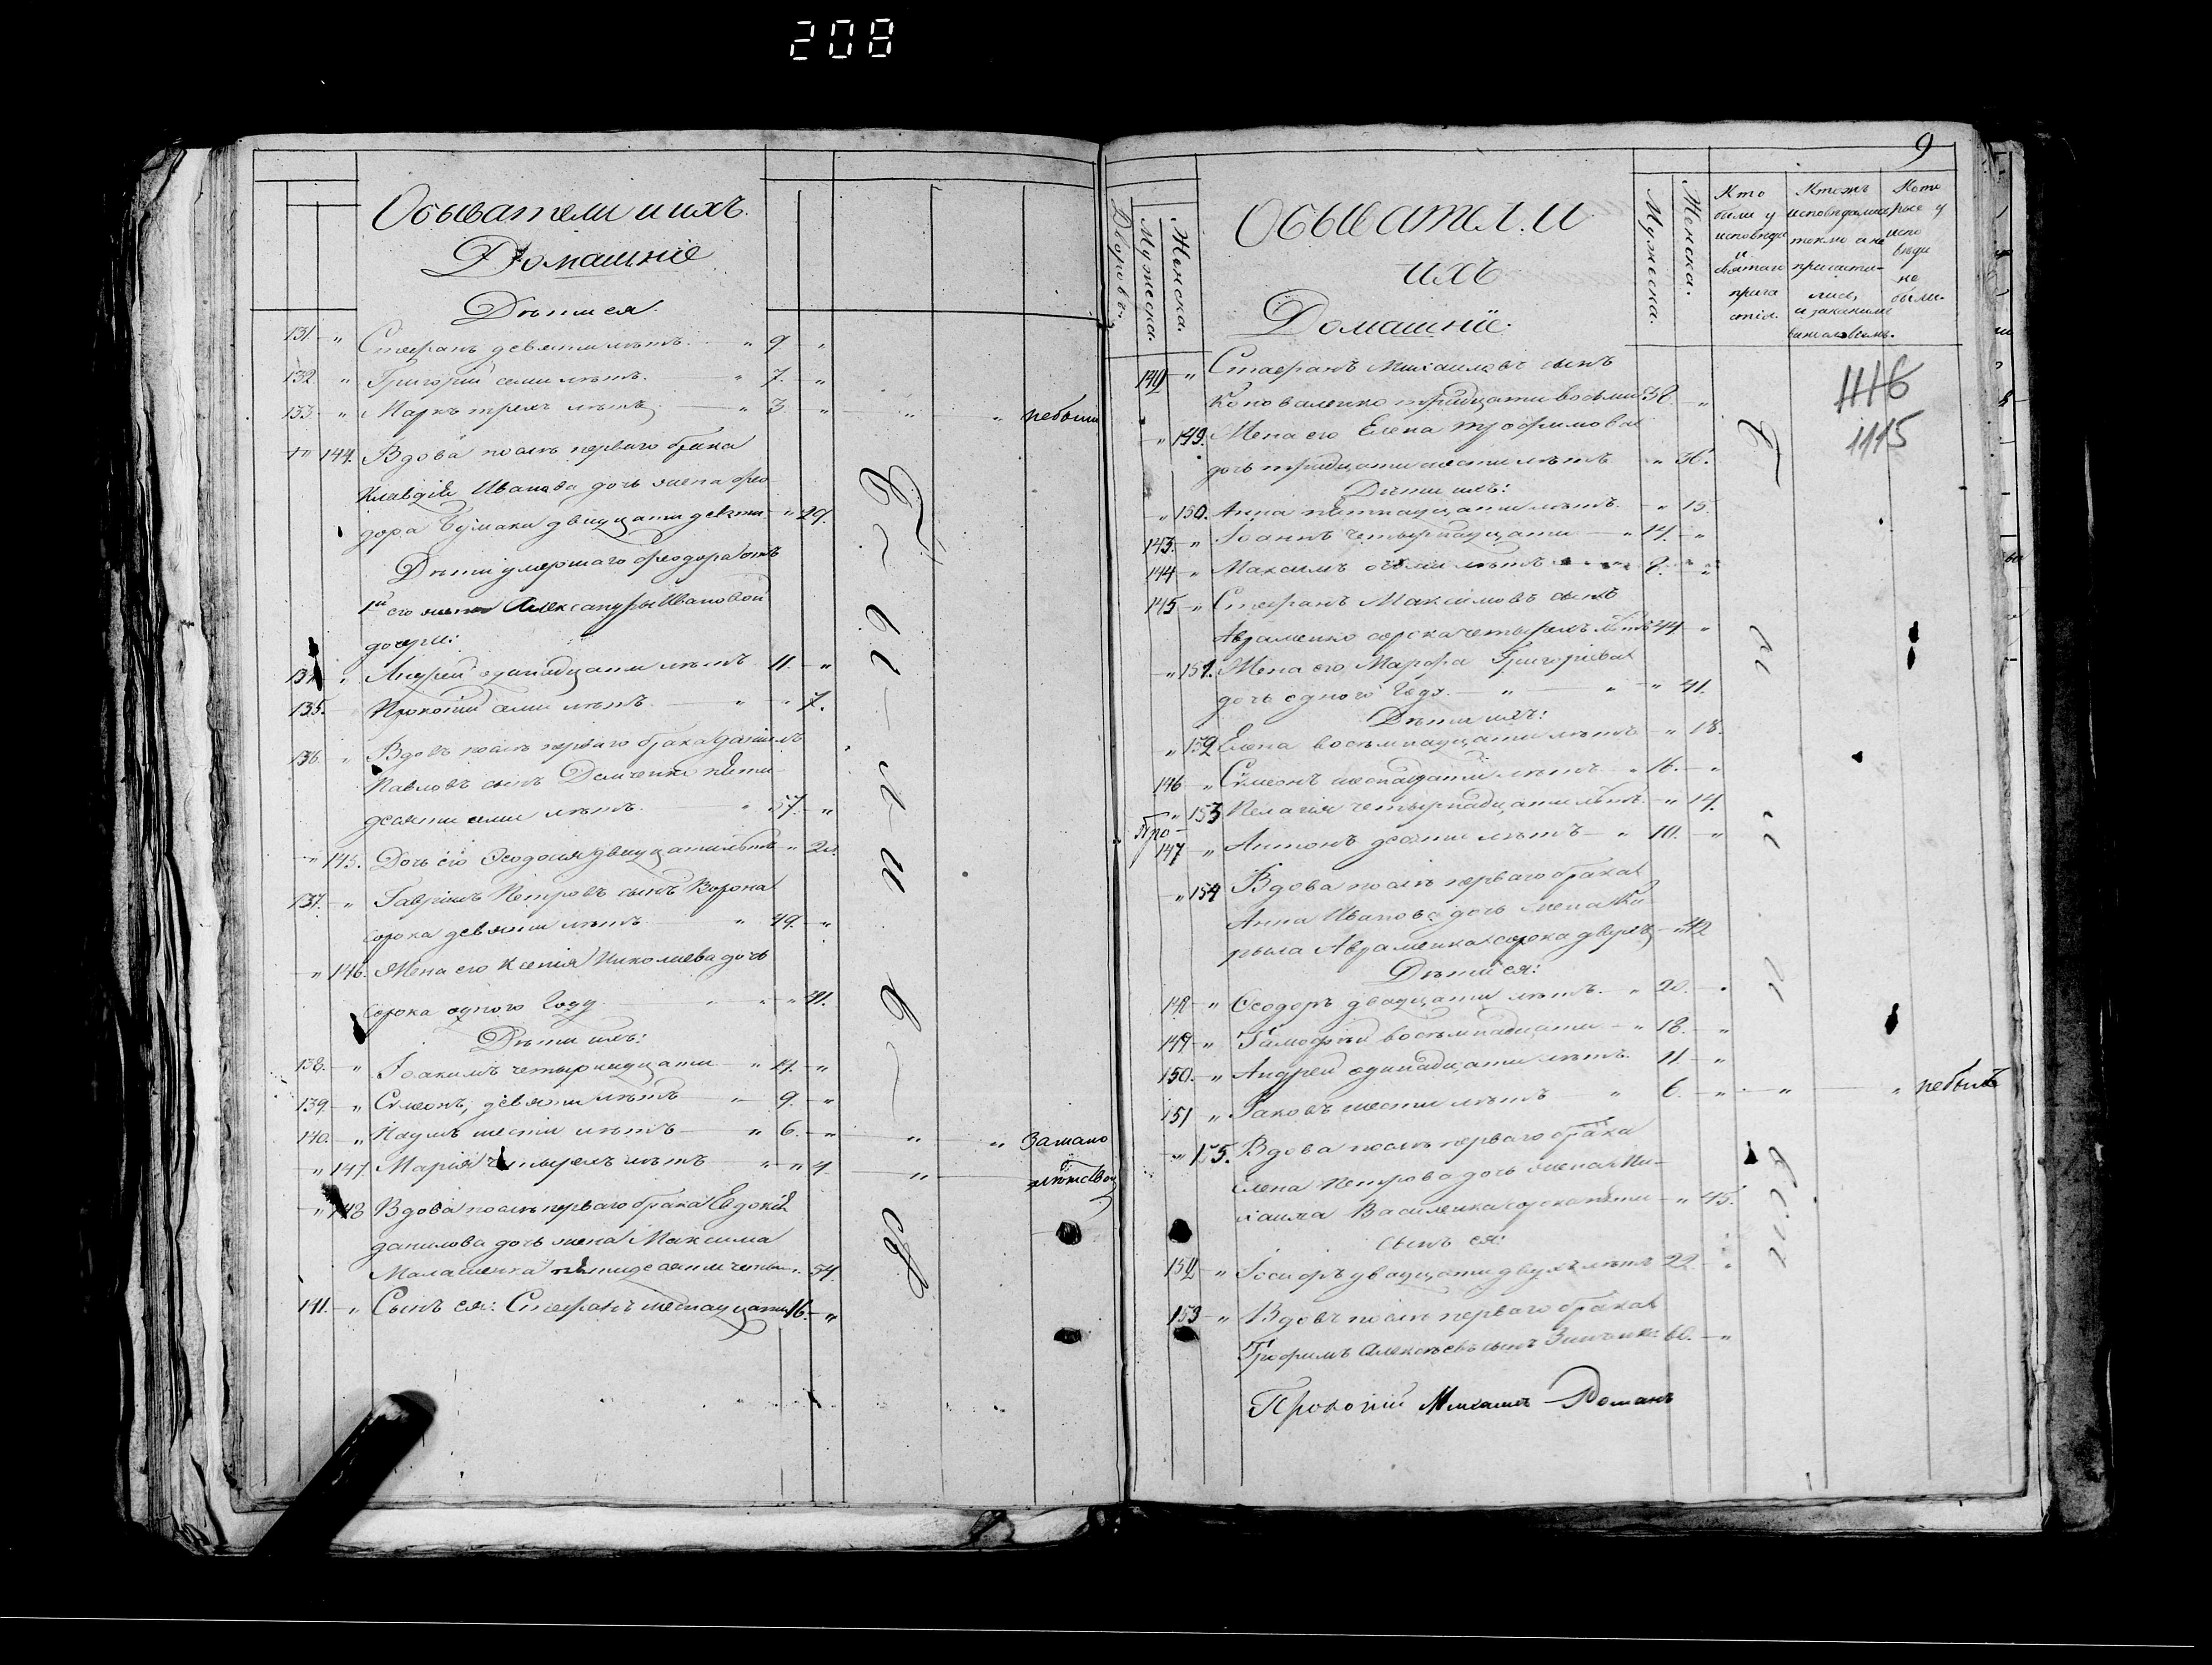 208
Обыватели и ихъ
Домашніе
Дѣти ея
131 " Стефанъ девяти лѣтъ " 9. "
132. " Григорій семи лѣтъ. " 7. "
133 " Маркъ трехъ лѣтъ " 3. " " " небыли
" 144. Вдова послѣ перваго брака
Клавдія Иванова дочь жена Ѳео
дора двадцати девяти " 29.
Дѣти умершаго Ѳеодора отъ
1й его жены Александры Ивановой
дочери:
134 " Андрей одинадцати лѣтъ 11. "
135. Прокопій семи лѣтъ. " " 7.
136. " Вдовъ послѣ перваго брака Даніилъ
Павловъ сынъ Демченко пяти
десяти семи лѣтъ. " 57. "
" 145. Дочь его Ѳеодосія двадцати лѣтъ " 20.
137. " Гавріилъ Петровъ сынъ Ворона
сорока девяти лѣтъ " 49. "
" 146. Жена его Ксенія Николаева дочь
сорока одного году " " 41.
Дѣти ихъ:
138. " Іоакимъ четырнадцати " 14. "
139. " Симеонъ, девяти лѣтъ " 9. "
140. " Наумъ шести лѣтъ " 6. " " " Замало
" 147 Марія четырехъ лѣтъ " " 4. " лѣтствомъ
" 148 Вдова послѣ перваго брака Евдокія
Данилова дочь жена Максима
Малашенка пятидесяти четыр. " 54.
141. " Сынъ ея: Стефанъ шестнадцати 16. "
Были у исповѣди
9
Обыватели
ихъ
Домашніе:
Дворовъ.
Мужеска.
Женска.
Мужеска.
Женска.
Кто
были у
исповѣди
и
святаго
прича
стія.
Ктожъ
исповѣдались
токмо а не
причасти-
лись,
и за какимъ
винословіемъ.
Кото
рые у
испо
вѣди
не
были.
1116
1115
142 " Стефанъ Михаиловъ сынъ
Коноваленко тридцати восьми 38. "
" 149. Жена его Елена Трофимова
дочь тридцати шести лѣтъ " 36.
Дѣти ихъ:
" 150. Анна пятнадцати лѣтъ. " 15.
143. " Іоаннъ четырнадцати " 14. "
144 " Максимъ осьми лѣтъ 8. "
145 " Стефанъ Максимовъ сынъ
Авраменко сорока четырехъ лѣтъ 44 "
" 151. Жена его Марфа Григоріева
дочь одного году. " " " 41.
Дѣти ихъ:
" 152 Елена восьмнадцати лѣтъ " 18.
146 " Симеонъ шеснадцати лѣтъ " 16. "
" 153 Пелагія четырнадцати лѣтъ. " 14.
147 " Антонъ десяти лѣтъ " 10. "
" 154 Вдова послѣ перваго брака
Анна Иванова дочь жена Ки
рыла Авраменка сорока двухъ " 42
Дѣти ея:
148 " Ѳеодоръ двадцати лѣтъ. " 20. "
149 " Тимофей восьмнадцати " 18. "
150. " Андрей одинадцати лѣтъ. 11 "
151 " Іаковъ шести лѣтъ " 6. " " " небылъ
" 155. Вдова послѣ перваго брака
Елена Петрова дочь жена Ми
хаила Василенка сорока пяти " 45.
Сынъ ея:
152 " Іосифъ двадцати двухъ лѣтъ 22. "
153 " Вдовъ послѣ перваго брака
Трофимъ Алексѣевъ сынъ 60. "
Прокопій Михаилъ Романъ